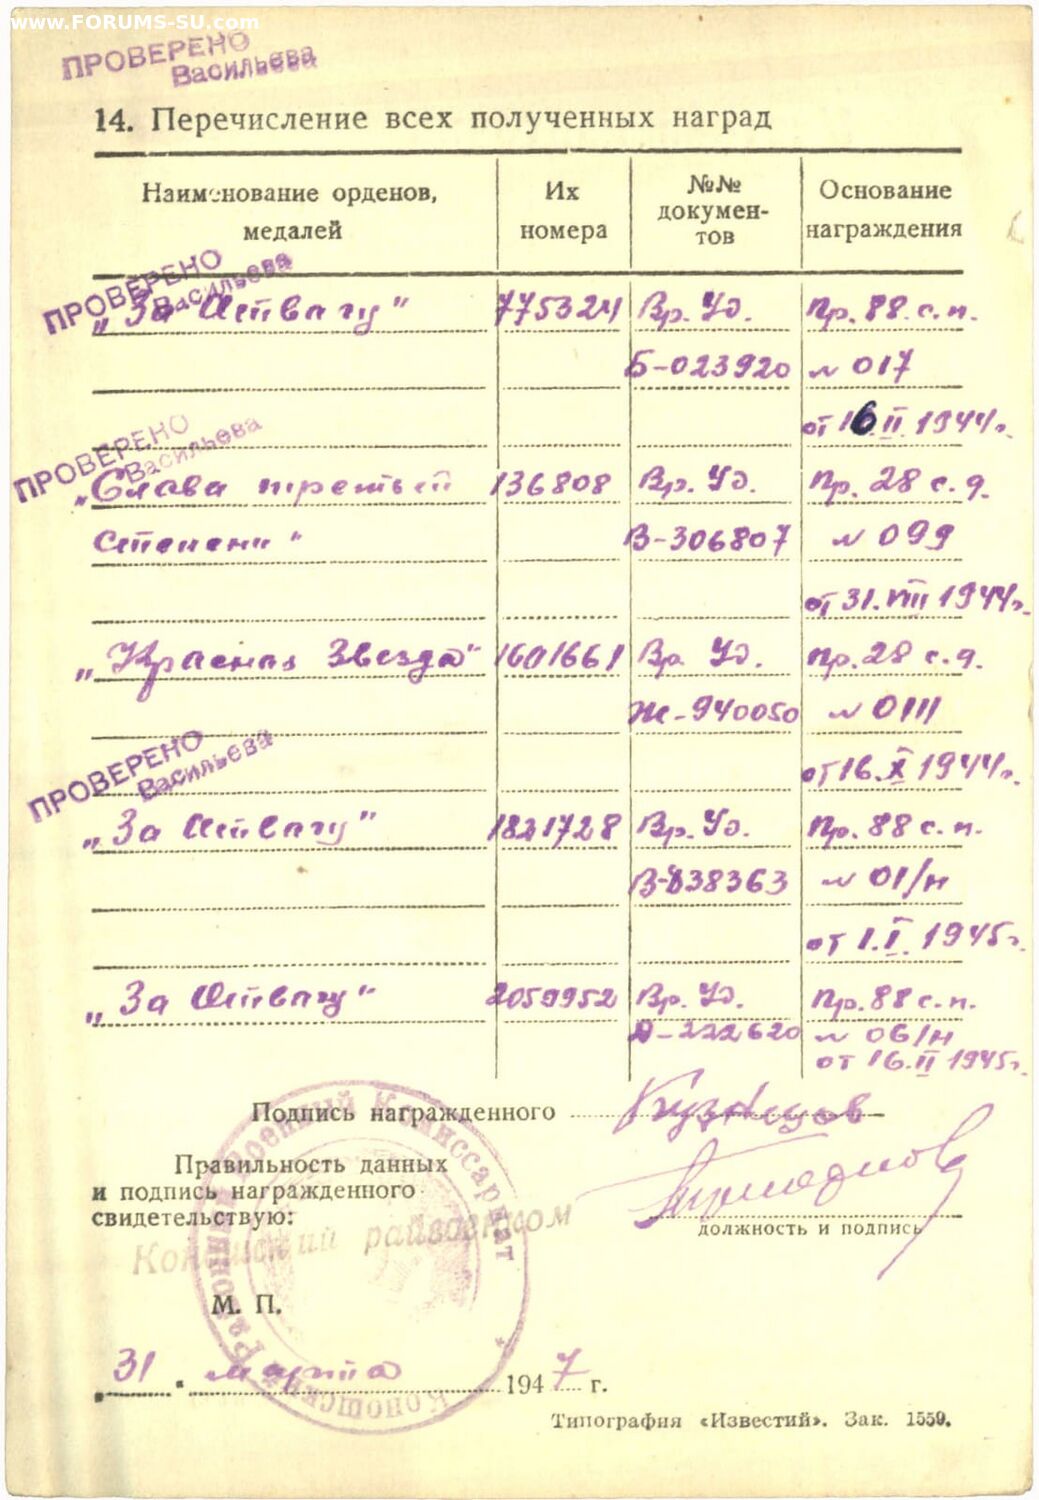 www.FORUMS-SU.com
ПРОВЕРЕНО
Васильева
14. Перечисление всех полученных наград
Наименование орденов, медалей | Их номера | №№ документов | Основание награждения
ПРОВЕРЕНО
Васильева
„За Отвагу" 775324 Вр. Уд. Пр. 88 с.п.
Б-023920 № 017
от 16.II.1944г.
ПРОВЕРЕНО
Васильева
„Слава третьей 136808 Вр. Уд. Пр. 28 с.д.
степени" В-306807 № 099
от 31.VIII 1944г.
„Красная Звезда" 1601661 Вр. Уд. Пр. 28 с.д.
Ж-940050 № 0111
от 16.X 1944г.
ПРОВЕРЕНО
Васильева
„За Отвагу" 1821728 Вр. Уд. Пр. 88 с.п.
В-838363 № 01/н
от 1.I. 1945г.
„За Отвагу" 2059952 Вр. Уд. Пр. 88 с.п.
Д-222620 № 06/н
от 16.II 1945г.
Подпись награжденного Кузнецов
Правильность данных
и подпись награжденного
свидетельствую:
должность и подпись
Коношский райвоенком
Коношский Районный Военный Комиссариат
М. П.
„31" марта 1947 г.
Типография «Известий». Зак. 1559.